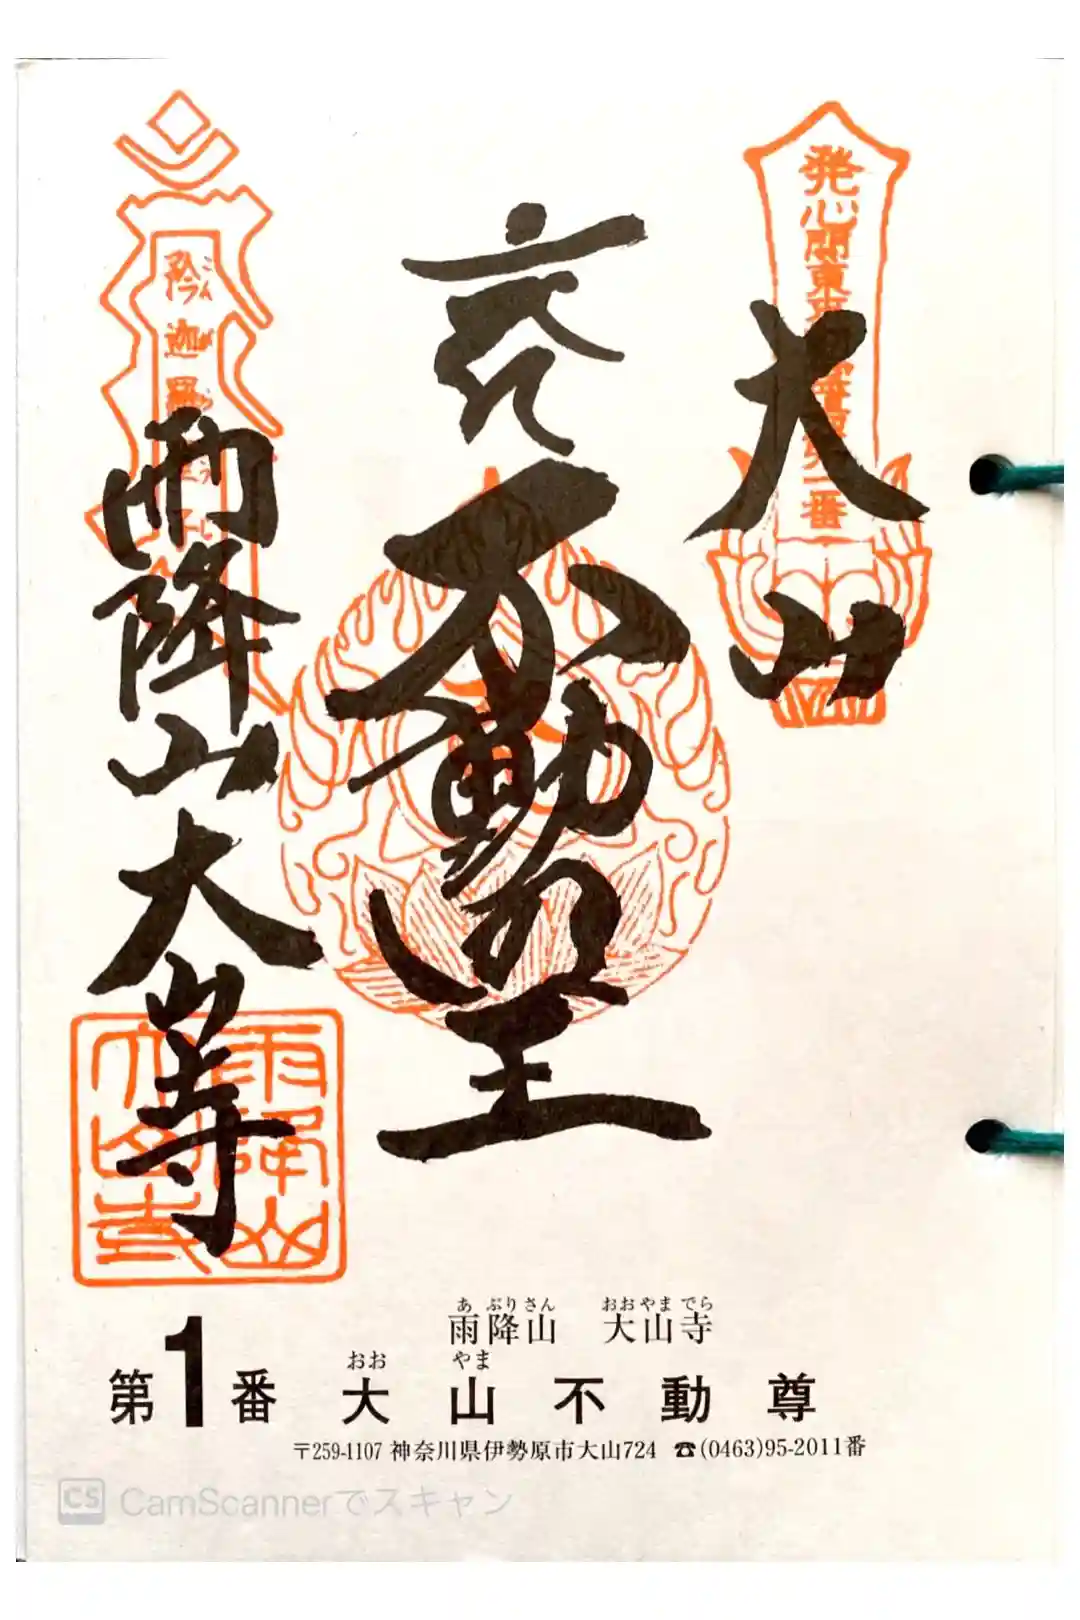 大山
不動明王
雨降山大山寺
雨降山
大山寺
あ ぶり さん おおやま でら
雨降山 大山寺
おお やま
第1番 大山不動尊
〒259-1107 神奈川県伊勢原市大山724 ☎(0463)95-2011番
CS CamScannerでスキャン